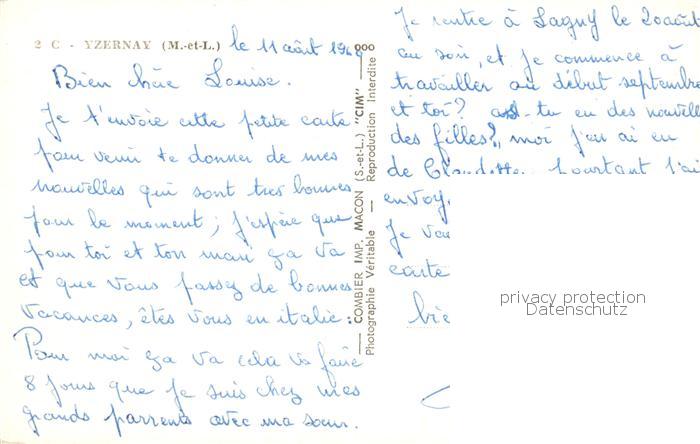 2 C - YZERNAY (M.-et-L.) le 11 août 196
Bien chère Louise.
Je t'envoie cette petite carte
pour venir te donner de mes
nouvelles qui sont tres bonnes
pour le moment ; j'espère que
pour toi et ton mari ça va
et que vous passez de bonnes
vacances, êtes vous en italie :
Pour moi ça va cela va faire
8 jours que je suis chez mes
grands parrents avec ma sœur.
COMBIER IMP. MACON (S.-et-L.) "CIM"
Photographie Véritable — Reproduction Interdite
Je rentre à Lagny le 20 août
au soir, et je commence à
travailler au début septembre
et toi? as-tu eu des nouvell
des filles?, moi j'en ai eu
de Claudette. Pourtant j'ai
envoy
Je vai
carte
bie
privacy protection
Datenschutz